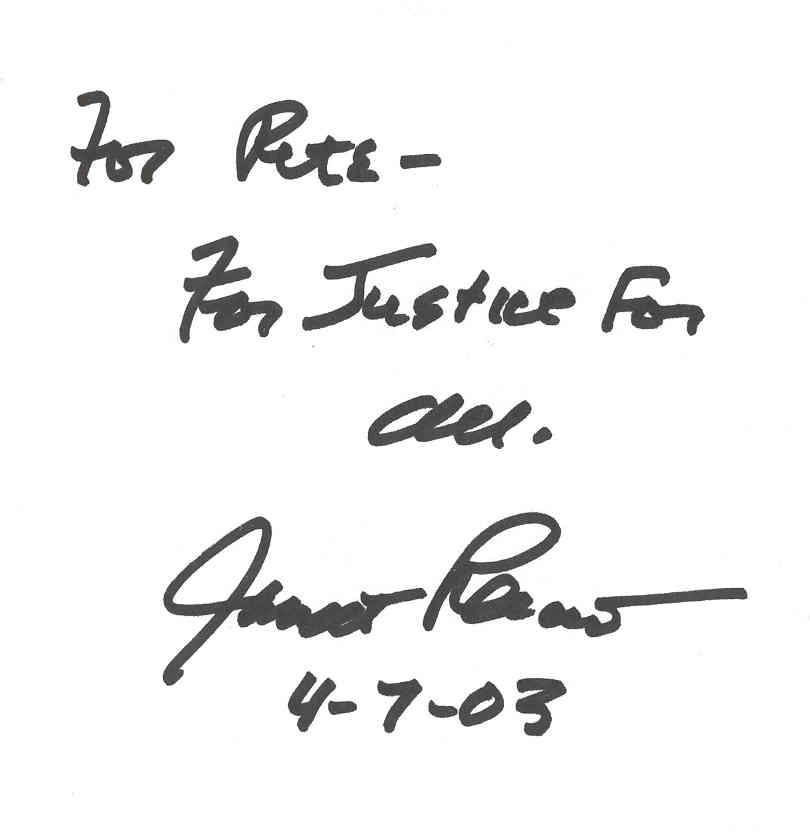 For Pete—
For Justice For
all.
Janet Reno
4-7-03